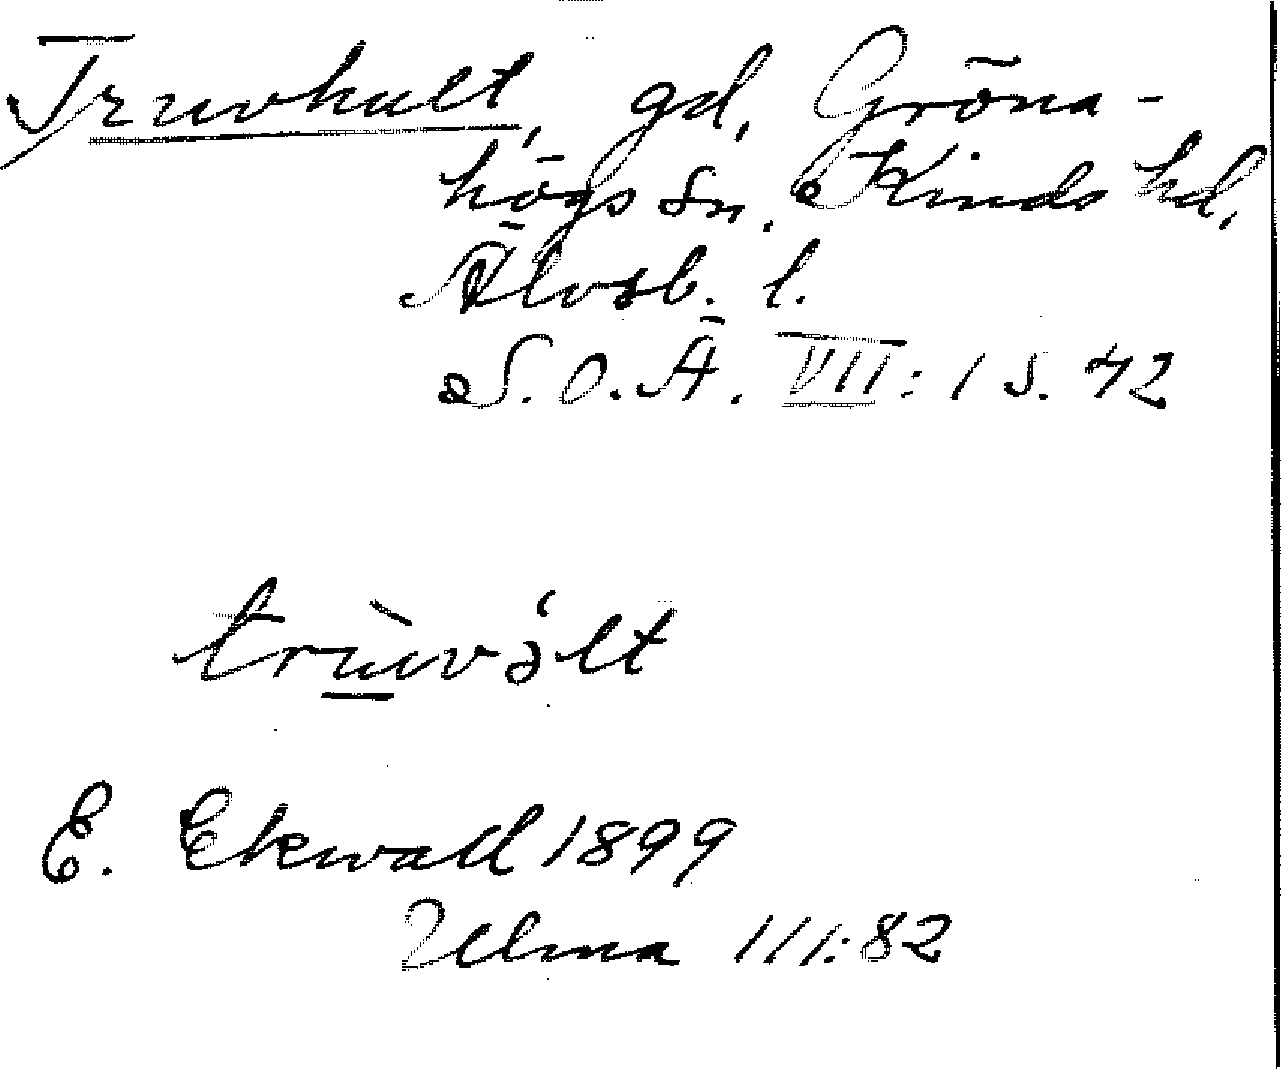 Truvhult, gd, Gröna-
högs sn. Kinds hd,
Älvsb. l.
S. O. Ä. VII: 1 s. 42
trùvə́lt
E. Ekwall 1899
Ulma 111:82